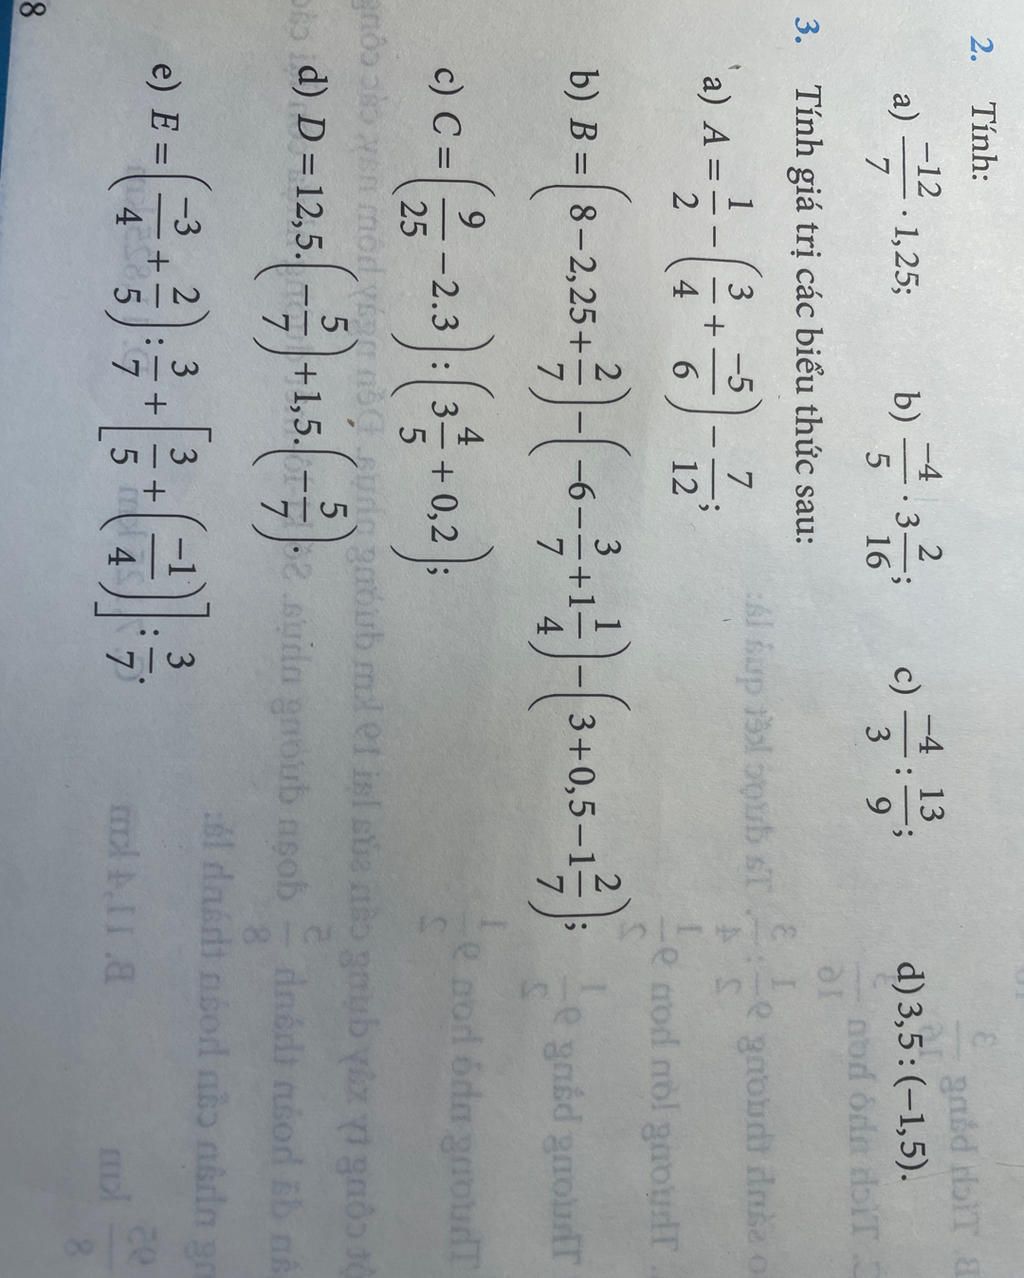 2. Tính:
a) \frac{-12}{7} · 1,25; b) \frac{-4}{5} · 3\frac{2}{16}; c) \frac{-4}{3} : \frac{13}{9}; d) 3,5 : (−1,5).
3. Tính giá trị các biểu thức sau:
a) A = \frac{1}{2} − (\frac{3}{4} + \frac{-5}{6}) − \frac{7}{12};
b) B = (8 − 2,25 + \frac{2}{7}) − (−6 − \frac{3}{7} + 1\frac{1}{4}) − (3 + 0,5 − 1\frac{2}{7});
c) C = (\frac{9}{25} − 2.3) : (3\frac{4}{5} + 0,2);
d) D = 12,5.(−\frac{5}{7}) + 1,5.(−\frac{5}{7}).
e) E = (\frac{-3}{4} + \frac{2}{5}) : \frac{3}{7} + [\frac{3}{5} + (\frac{-1}{4})] : \frac{3}{7}.
8